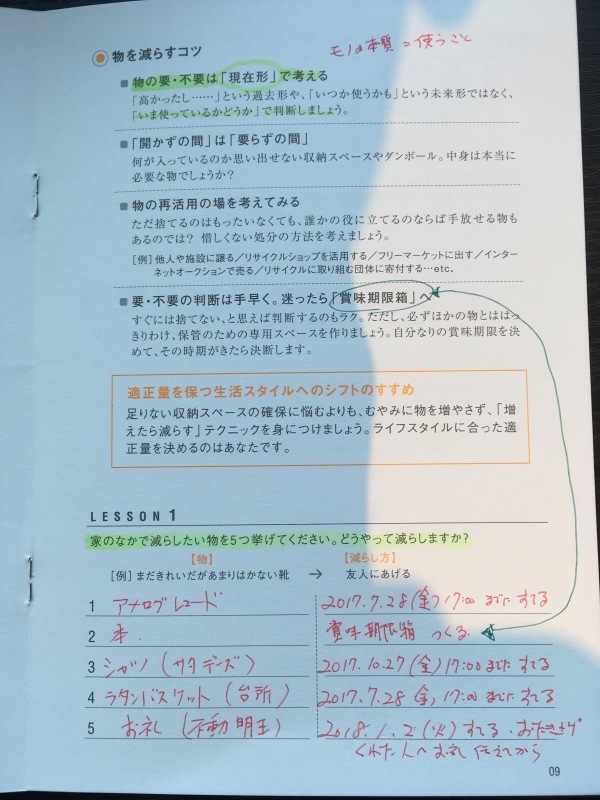 物を減らすコツ
モノの本質=使うこと
物の要・不要は「現在形」で考える
「高かったし……」という過去形や、「いつか使うかも」という未来形ではなく、
「いま使っているかどうか」で判断しましょう。
「開かずの間」は「要らずの間」
何が入っているのか思い出せない収納スペースやダンボール。中身は本当に
必要な物でしょうか?
物の再活用の場を考えてみる
ただ捨てるのはもったいなくても、誰かの役に立てるのならば手放せる物も
あるのでは? 惜しくない処分の方法を考えましょう。
[例]他人や施設に譲る/リサイクルショップを活用する/フリーマーケットに出す/インター
ネットオークションで売る/リサイクルに取り組む団体に寄付する…etc.
要・不要の判断は手早く。迷ったら「賞味期限箱」へ
すぐには捨てない、と思えば判断するのもラク。ただし、必ずほかの物とははっ
きりわけ、保管のための専用スペースを作りましょう。自分なりの賞味期限を決
めて、その時期がきたら決断します。
適正量を保つ生活スタイルへのシフトのすすめ
足りない収納スペースの確保に悩むよりも、むやみに物を増やさず、「増
えたら減らす」テクニックを身につけましょう。ライフスタイルに合った適
正量を決めるのはあなたです。
LESSON 1
家のなかで減らしたい物を5つ挙げてください。どうやって減らしますか?
【物】 【減らし方】
[例]まだきれいだがあまりはかない靴 → 友人にあげる
1 アナログレコード 2017.7.28(金)17:00までにすてる
2 本. 賞味期限箱 つくる
3 シャツ(サタデンズ) 2017.10.27(金)17:00までにすてる
4 ラタンバスケット(台所) 2017.7.28(金)17:00までにすてる
5 お礼(不動明王) 2018.1.2(火)すてる・おたきあげ
くれた人へお礼 伝えてから
09